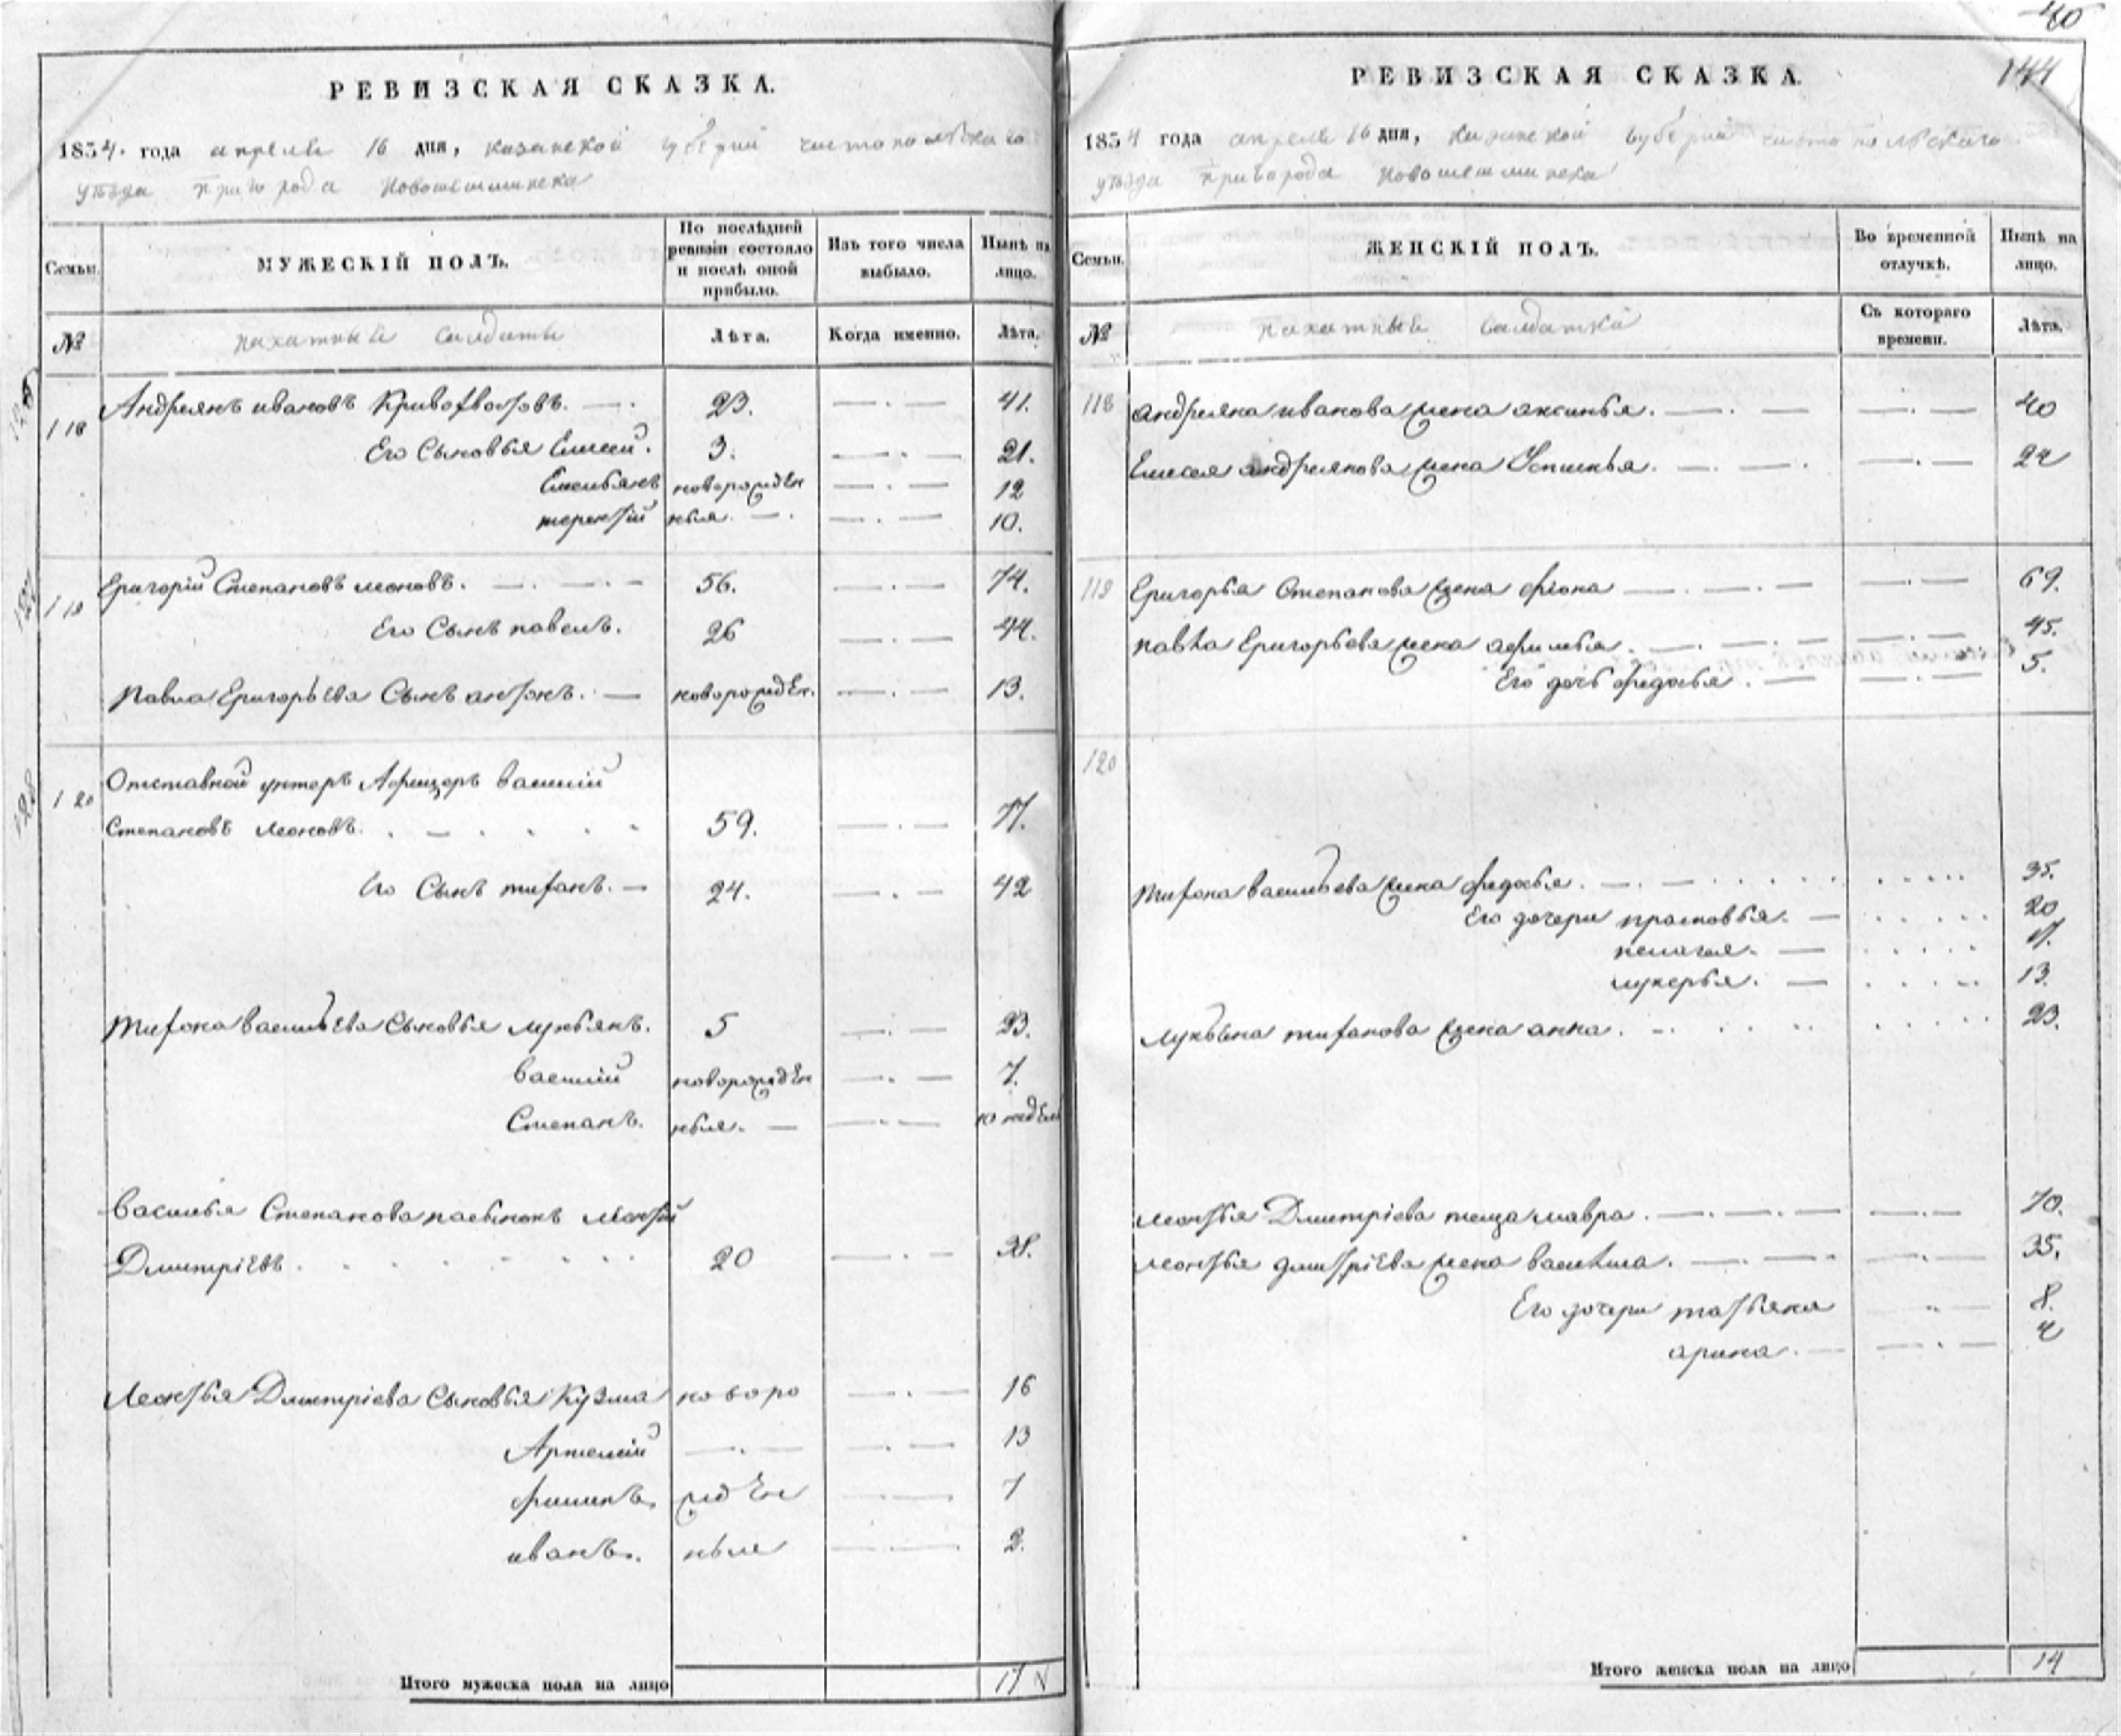 40
РЕВИЗСКАЯ СКАЗКА.
1834. года апреля 16 дня, казанской губерний чистопольскаго
уѣзда пригорода Новошешминска
Семьи.
МУЖЕСКІЙ ПОЛЪ.
По послѣдней ревизіи состояло и послѣ оной прибыло.
Изъ того числа выбыло.
Нынѣ на лицо.
№
пахатные солдаты
Лѣта.
Когда именно.
Лѣта.
118
Андреянъ ивановъ Кривохвостовъ. 23. 41.
Его Сыновья Елисей. 3. 21.
Емельянъ новорожден 12
терентий ныя. 10.
119
Григорій Степановъ леоновъ. 56. 74.
Его Сынъ павелъ. 26 44.
Павла Григорьева Сынъ антонъ. новорожден. 13.
120
Отставной унтеръ Афицеръ василий
Степановъ леоновъ. 59. 77.
Его Сынъ тифанъ. 24. 42
Тифона васильева Сыновья лукьянъ. 5 23.
василий новорожден 7.
Степанъ. ныя. 10 недель
Василья Степанова пасынокъ леонтий
Дмитріевъ. 20 38.
Леонтья Дмитріева Сыновья Кузма новоро 16
Артемий 13
филипъ. жден 7
иванъ. ныя 2.
Итого мужеска пола на лицо 17
144
РЕВИЗСКАЯ СКАЗКА.
1834 года апреля 16 дня, казанской губерний чистопольскаго
уѣзда пригорода Новошешминска
Семьи.
ЖЕНСКІЙ ПОЛЪ.
Во временной отлучкѣ.
Нынѣ на лицо.
№
пахатные солдатки
Съ котораго времени.
Лѣта.
118
андреяна иванова жена аксинья. 40
Елисея андреянова жена Устинья. 24
119
Григорья Степанова жена фіона 69.
павла Григорьева жена афимья. 45.
Его дочь федосья. 5.
120
Тифона васильева жена федосья. 35.
Его дочери прасковья. 20
пелагея. 17.
лукерья. 13.
лукьяна тифанова жена анна. 23.
леонтья Дмитріева теща мавра. 70.
леонтья дмитріева жена василиса. 35.
Его дочери татьяна 8.
арина. 4
Итого женска пола на лицо 14